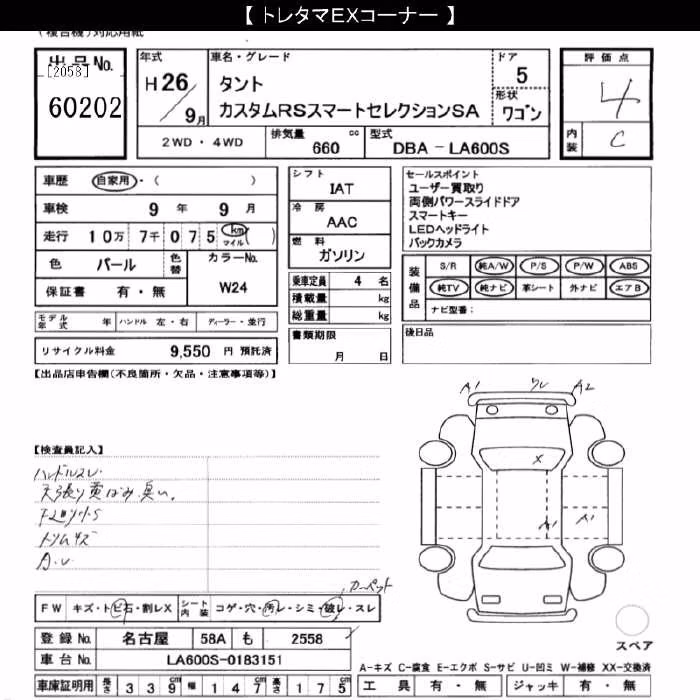 【 トレタマEXコーナー 】
(複合機)対応用紙
出品No.
[2058]
60202
年式
H26/9月
車名・グレード
タント
カスタムRSスマートセレクションSA
ドア
5
形状
ワゴン
評価点
4
内装
C
2WD・4WD
排気量
660 cc
型式
DBA－LA600S
車歴 自家用・( )
車検 9年 9月
走行 10万7千075 km マイル ( )
色 パール
色替
カラーNo.
W24
保証書 有・無
シフト
IAT
冷房
AAC
燃料
ガソリン
乗車定員 4 名
積載量 kg
総重量 kg
書類期限
月 日
セールスポイント
ユーザー買取り
両側パワースライドドア
スマートキー
LEDヘッドライト
バックカメラ
装備品
S/R 純A/W P/S P/W ABS
純TV 純ナビ 革シート 外ナビ エアB
ナビ型番：
後日品
モデル年式 年 ハンドル 左・右 ディーラー・並行
リサイクル料金 9,550 円 預託済
【出品店申告欄(不良箇所・欠品・注意事項等)】
A1 ワレ A2
X
A1 A1
【検査員記入】
ハンドルスレ
天張り黄ばみ臭い。
トリムキズ
A.U
カーペット
FW キズ・トビ石・割レX
シート内装 コゲ・穴・汚レ・シミ・破レ・スレ
登録No. 名古屋 58A も 2558
車台No. LA600S-0183151
車庫証明用 長さ 339cm 幅 147cm 高さ 175cm
スペア
A-キズ C-腐食 E-エクボ S-サビ U-凹ミ W-補修 XX-交換済
工具 有・無 ジャッキ 有・無